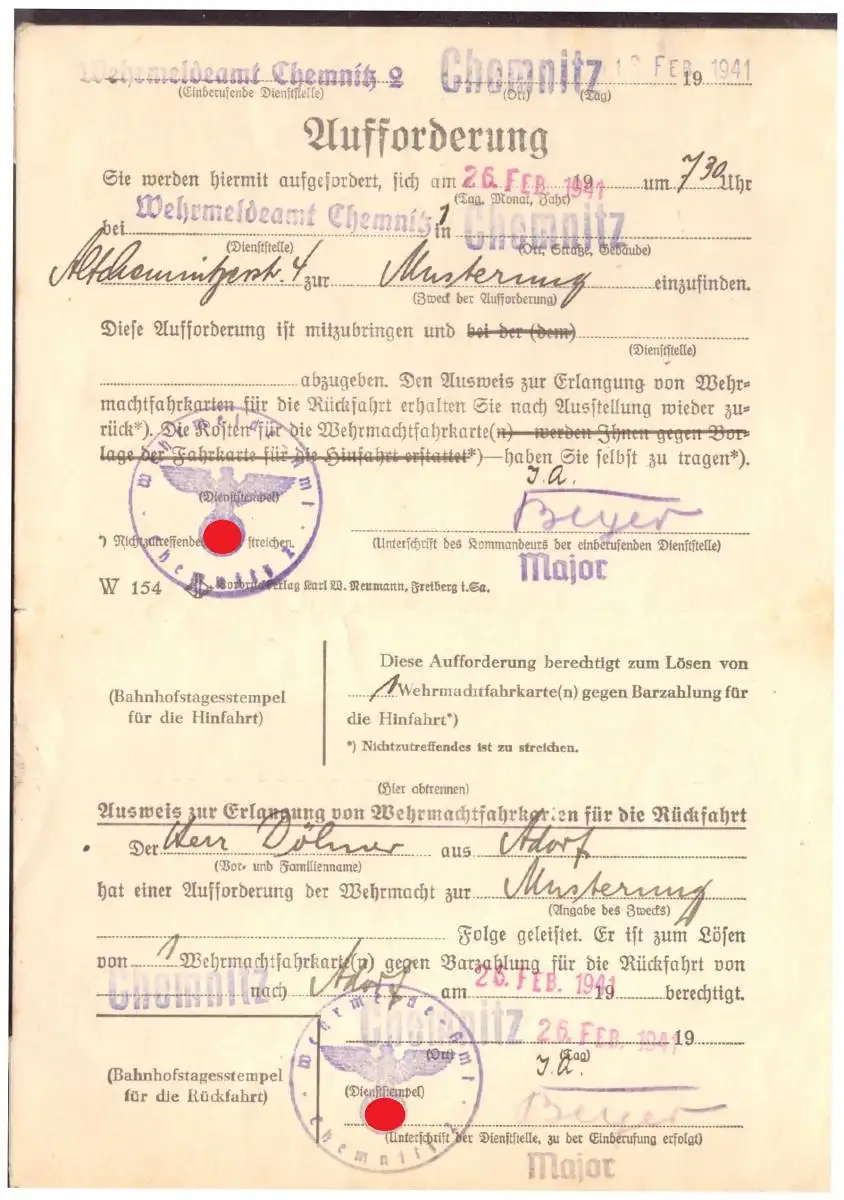 Wehrmeldeamt Chemnitz 2 Chemnitz FEB 1941 19
(Einberufende Dienststelle) (Ort) (Tag)
Aufforderung
Sie werden hiermit aufgefordert, sich am 26. FEB. 1941 19 um 7 30 Uhr
(Tag, Monat, Jahr)
bei Wehrmeldeamt Chemnitz 1 in Chemnitz
(Dienststelle) (Ort, Straße, Gebäude)
Altchemnitzerstr. 4 zur Musterung einzufinden.
(Zweck der Aufforderung)
Diese Aufforderung ist mitzubringen und bei der (dem)
(Dienststelle)
abzugeben. Den Ausweis zur Erlangung von Wehr-
machtfahrkarten für die Rückfahrt erhalten Sie nach Ausstellung wieder zu-
rück*). Die Kosten für die Wehrmachtfahrkarte(n) werden Ihnen gegen Vor-
lage der Fahrkarte für die Hinfahrt erstattet*) – haben Sie selbst zu tragen*).
J. A.
Wehrmeldeamt Chemnitz 2
(Dienststempel)
Beyer
*) Nichtzutreffendes streichen.
(Unterschrift des Kommandeurs der einberufenden Dienststelle)
Major
W 154 Vordruckverlag Karl W. Neumann, Freiberg i. Sa.
Diese Aufforderung berechtigt zum Lösen von
(Bahnhofstagesstempel
für die Hinfahrt)
1 Wehrmachtfahrkarte(n) gegen Barzahlung für
die Hinfahrt*)
*) Nichtzutreffendes ist zu streichen.
(Hier abtrennen)
Ausweis zur Erlangung von Wehrmachtfahrkarten für die Rückfahrt
Der Herr Döhner aus Adorf
(Vor- und Familienname)
hat einer Aufforderung der Wehrmacht zur Musterung
(Angabe des Zwecks)
Folge geleistet. Er ist zum Lösen
von 1 Wehrmachtfahrkarte(n) gegen Barzahlung für die Rückfahrt von
Chemnitz nach Adorf am 26. FEB. 1941 19 berechtigt.
Chemnitz 26 FEB. 1941 19
(Ort) (Tag)
J. A.
(Bahnhofstagesstempel
für die Rückfahrt)
Wehrmeldeamt Chemnitz 2
(Dienststempel)
Beyer
(Unterschrift der Dienststelle, zu der Einberufung erfolgt)
Major